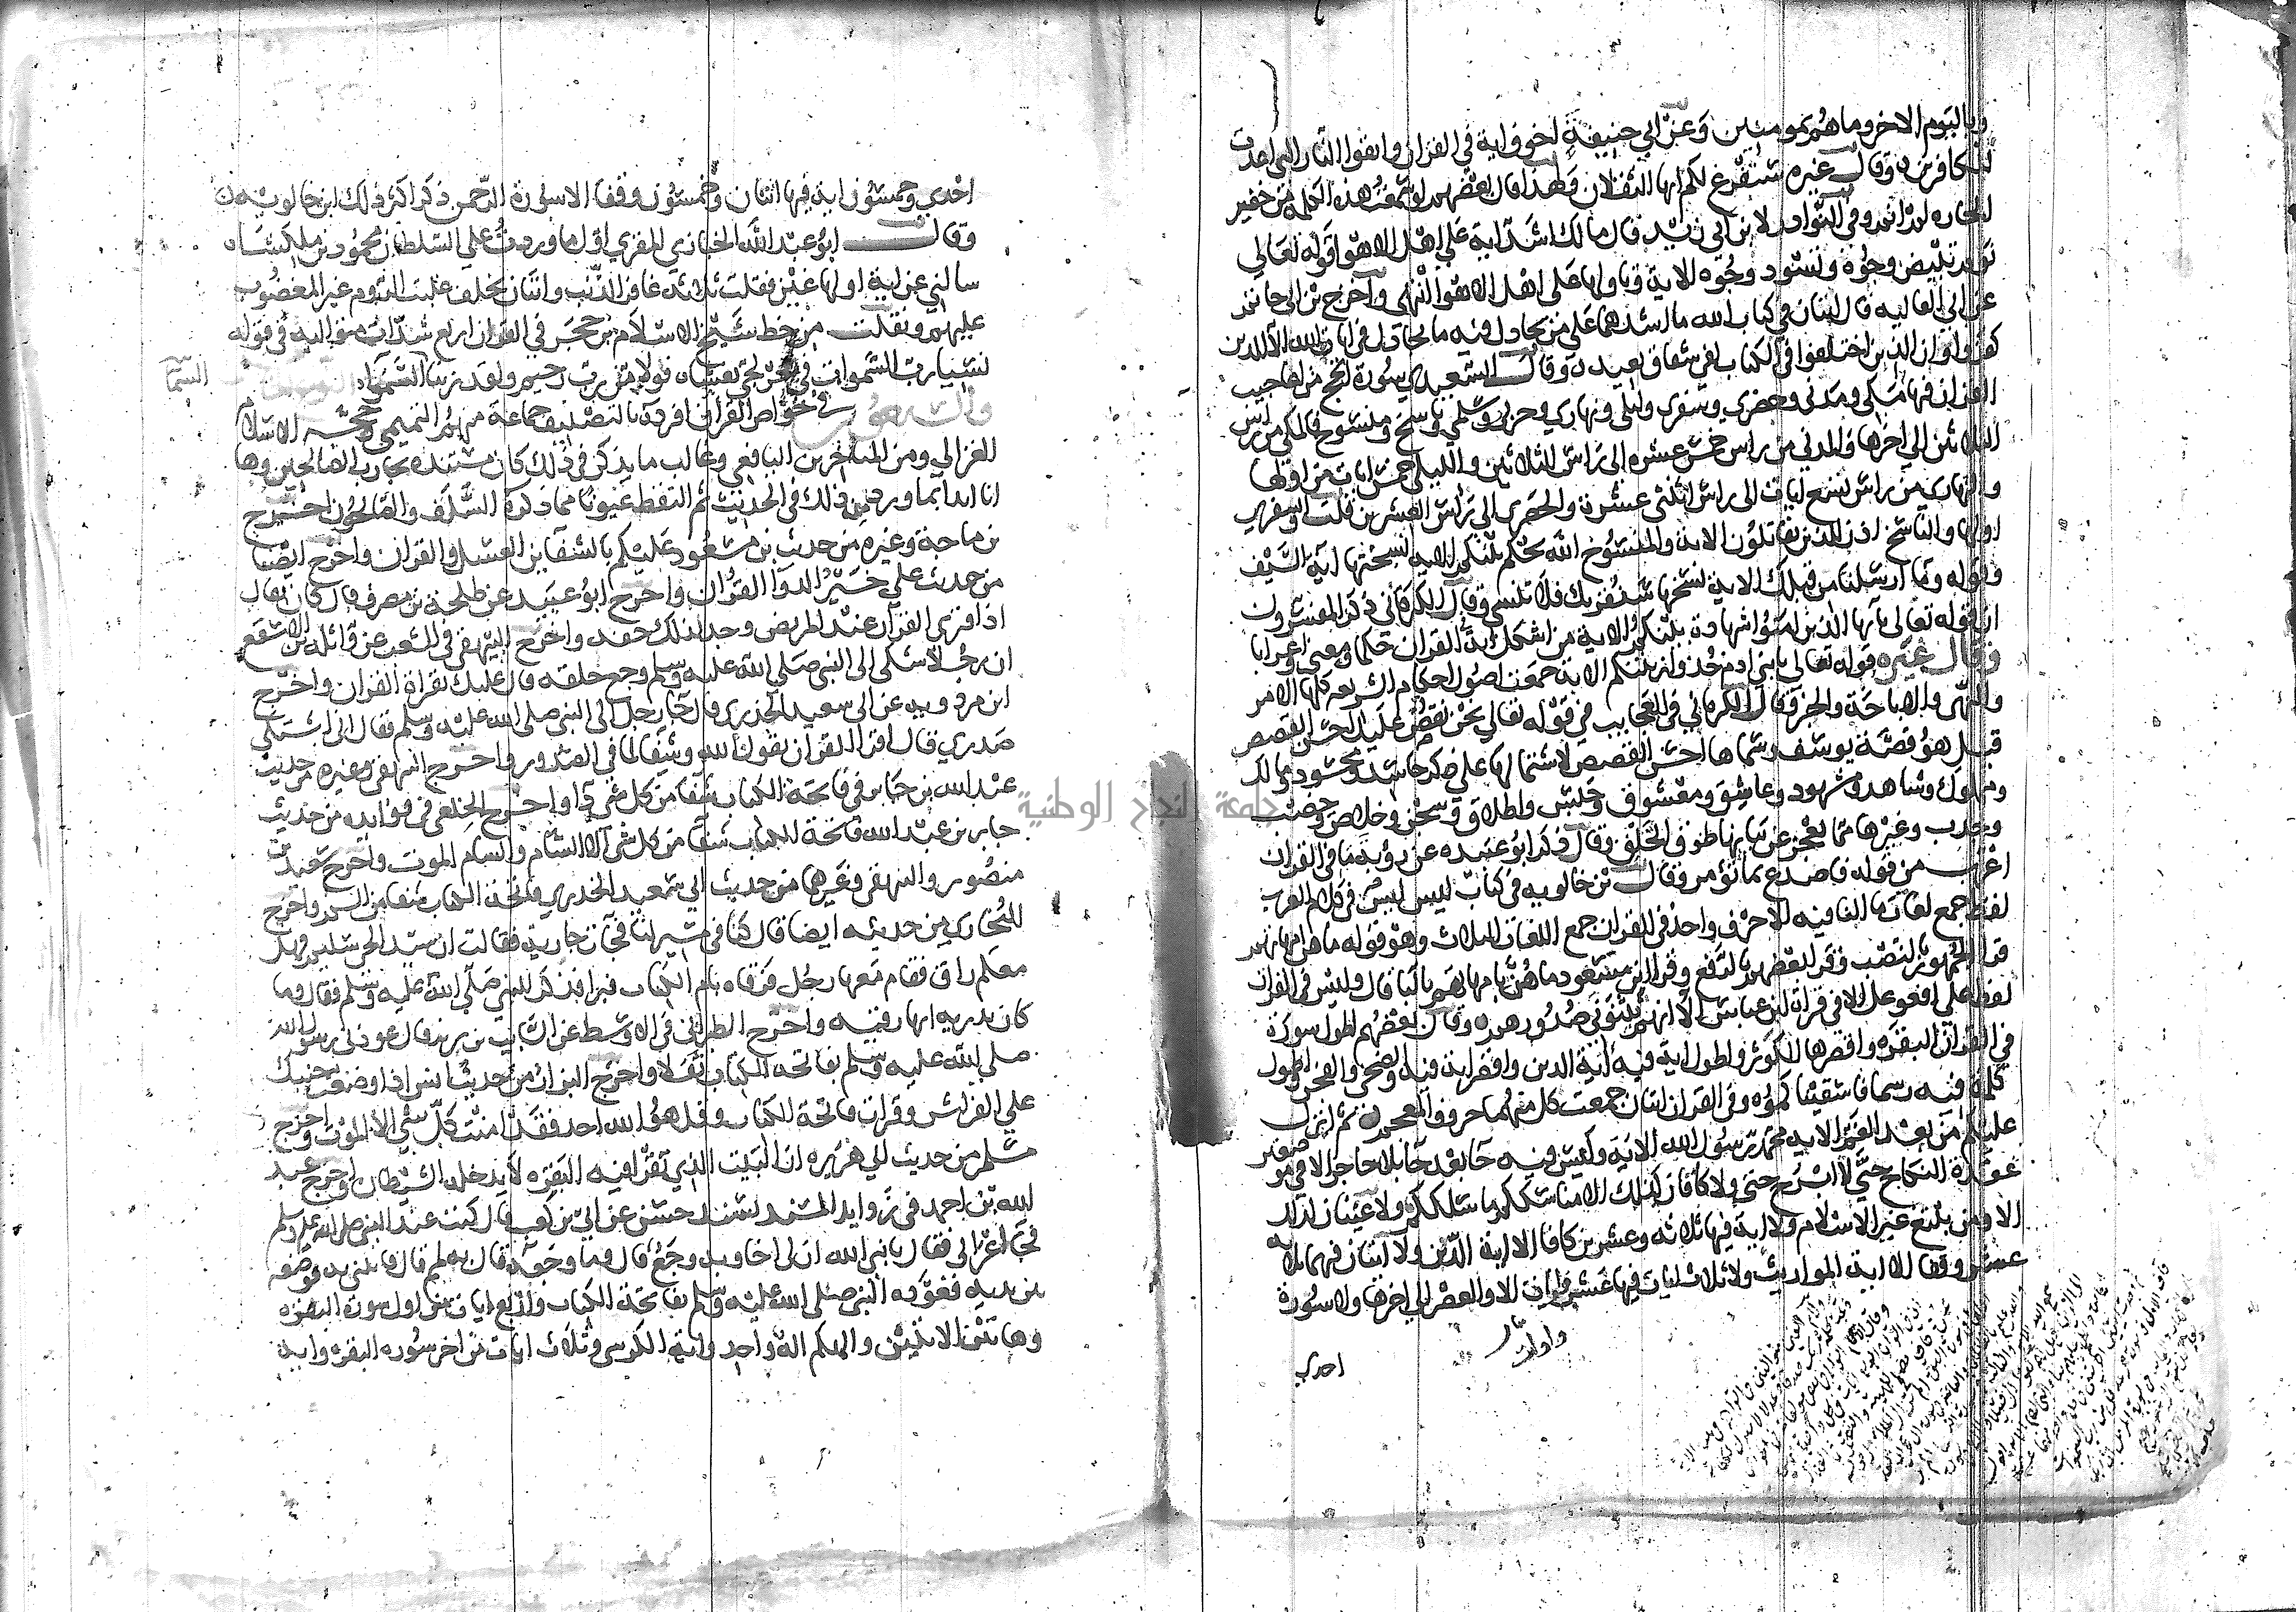 وباليوم الاخر وما هم بمومنين وعن ابي حنيفة اخوف اية في القران واتقوا النار التي اعدت
للكافرين وقال غيره سنفرغ لكم ايها الثقلان ولهذا قال بعضهم لو سمعت هذه الكلمة من خفير
الحاره لم انم وفي النوادر لابن ابي زيد قال مالك اشد اية على اهل الاهوا قوله تعالى
يوم تبيض وجوه وتسود وجوه الاية وتاولها على اهل الاهوا انتهى واخرج بن ابي حاتم
عن ابي العاليه قال ايتان في كتاب الله ما اشدهما على من يجادل فيه ما يجادل في ايات الله الا الذين
كفروا وان الذين اختلفوا في الكتاب لفي شقاق بعيد وقال السعيدي سورة الحج من اعاجيب
القران فيها مكي ومدني وحضري وسفري وليلي ونهاري وحربي وسلمي وناسخ ومنسوخ فالمكي من راس
الثلاثين الى اخرها والمدني من راس خمس عشره الى راس الثلاثين والليلي خمس ايات من اولها
والنهاري من راس تسع ايات الى راس اثنتي عشرة والحضري الى راس العشرين قلت والسفري
اولها والناسخ اذن للذين يقاتلون الاية والمنسوخ الله يحكم بينكم الاية نسختها اية السيف
وقوله وما ارسلنا من قبلك الاية نسخها سنقرئك فلا تنسى وقال الكرماني ذكر المفسرون
ان قوله تعالى يايها الذين امنوا شهادة بينكم الاية من اشكل اية في القران حكما ومعنى واعرابا
وقال غيره قوله تعالى يابني ادم خذوا زينتكم الاية جمعت اصول احكام الشريعه كلها الامر
والنهى والاباحة والخبر وقال الكرماني في العجايب في قوله تعالى نحن نقص عليك احسن القصص
قيل هو قصة يوسف وسماها احسن القصص لاشتمالها على ذكر حاسد ومحسود ومالك
ومملوك وشاهد ومشهود وعاشق ومعشوق وحبس واطلاق وسجن وخلاص وخصب
وجدب وغيرها مما يعجز عن بيانها طوق الخلق وقال ذكر ابو عبيده عن روبة ما في القران
اغرب من قوله فاصدع بما تؤمر وقال بن خالويه في كتاب ليس ليس في كلام العرب
لفظ جمع لغات ما النافيه الا حرف واحد في القران جمع اللغات الثلاث وهو قوله ما هن امهاتهم
قرا الجمهور بالنصب وقرا بعضهم بالرفع وقرا ابن مسعود ما هن بامهاتهم بالبا قال وليس في القران
لفظ على افعوعل الا في قراة ابن عباس الا انهم يثنوني صدورهم وقال بعضهم اطول سورة
في القران البقره واقصرها الكوثر واطول اية فيه اية الدين واقصر اية فيه والضحى والفجر واطول
كلمة فيه رسما فاسقيناكموه وفي القران ايتان جمعت كل منهما حروف المعجم ثم انزل
عليكم من بعد الغم الاية محمد رسول الله الاية وليس فيه حا بعد حا بلا حاجز الا في موضعين
عقدة النكاح حتى لا ابرح حتى ولا كافان كذلك الا مناسككم ما سلككم ولا غينان كذلك
الا ومن يبتغ غير الاسلام ولا اية فيها ثلاثه وعشرين كافا الا اية الدين ولا ايتان فيهما ثلاثه
عشر وقفا الا اية المواريث ولا ثلاث ايات فيها عشر واوات الا والعصر الى اخرها ولا سورة
واوات
احدى
احدى وخمسون اية فيها اثنان وخمسون وقفا الا سورة الرحمن ذكر اكثر ذلك ابن خالويه
وقال ابو عبد الله الخبازي المقري اول ما وردت على السلطان محمود بن ملكشاه
سالني عن اية اولها غين فقلت ثلاثة غافر الذنب واثنان بخلف غلبت الروم غير المغضوب
عليهم ونقلت من خط شيخ الاسلام بن حجر في القران اربع شدات متواليه في قوله
نسيا رب السموات في بحر لجي يغشاه قولا من رب رحيم ولقد زينا السما
السما
في خواص القران افرده بالتصنيف جماعة منهم التميمي وحجة الاسلام
الغزالي ومن المتاخرين اليافعي وغالب ما يذكر في ذلك كان مستنده تجارب الصالحين وها
انا ابدا بما ورد من ذلك في الحديث ثم التقط عيونا مما ذكره السلف والصالحون اخرج
بن ماجة وغيره من حديث بن مسعود عليكم بالشفاين العسل والقران واخرج ايضا
من حديث علي خير الدوا القران واخرج ابو عبيد عن طلحة بن مصرف قال كان يقال
اذا قرى القران عند المريض وجد لذلك خفه واخرج البيهقي في الشعب عن واثله بن الاسقع
ان رجلا شكى الى النبي صلى الله عليه وسلم وجع حلقه قال عليك بقراة القران واخرج
ابن مردويه عن ابي سعيد الخدري قال جا رجل الى النبي صلى الله عليه وسلم فقال اني اشتكي
صدري قال اقرا القران يقول الله وشفا لما في الصدور واخرج البيهقي وغيره من حديث
عبد الله بن جابر في فاتحة الكتاب شفا من كل داء واخرج الخلعي في فوايده من حديث
جابر بن عبد الله فاتحة الكتاب شفا من كل شي الا السام والسام الموت واخرج سعيد بن
منصور والبيهقي وغيرهما من حديث ابي سعيد الخدري فاتحة الكتاب شفا من السم واخرج
البخاري من حديثه ايضا قال كنا في مسير لنا فنزلنا فجات جارية فقالت ان سيد الحي سليم فهل
معكم راق فقام معها رجل فرقاه بام الكتاب فبرا فذكر للنبي صلى الله عليه وسلم فقال وما
كان يدريه انها رقيه واخرج الطبراني في الاوسط عن السايب بن يزيد قال عوذني رسول الله
صلى الله عليه وسلم بفاتحة الكتاب تفلا واخرج البزار من حديث انس اذا وضعت جنبك
على الفراش وقرات فاتحة الكتاب وقل هو الله احد فقد امنت كل شي الا الموت واخرج
مسلم من حديث ابي هريره ان البيت الذي تقرا فيه البقره لا يدخله الشيطان واخرج عبد
الله بن احمد في زوايد المسند بسند حسن عن ابي بن كعب قال كنت عند النبي صلى الله عليه وسلم
فجا اعرابي فقال يانبي الله ان لي اخا وبه وجع قال وما وجعه قال به لمم قال فاتني به فوضعه
بين يديه فعوذه النبي صلى الله عليه وسلم بفاتحة الكتاب واربع ايات من اول سورة البقره
وهاتين الايتين والهكم اله واحد واية الكرسي وثلاث ايات من اخر سورة البقره واية
جامعة النجاح الوطنية